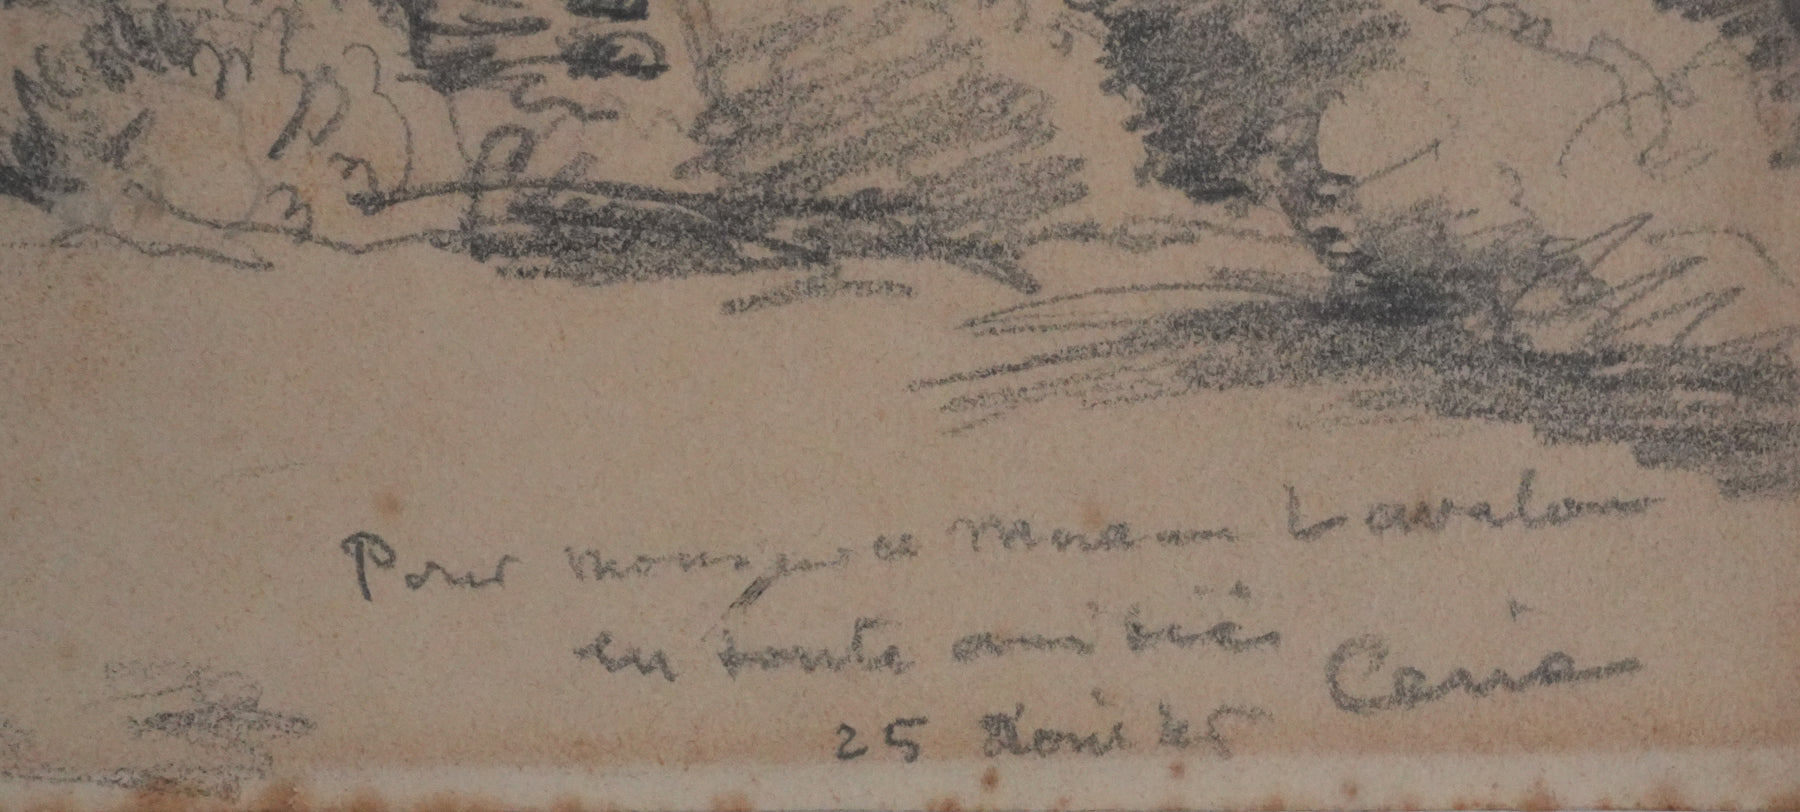 Pour Monsieur et Madame Lavalou
en toute amitié Ceria
25 Août 45